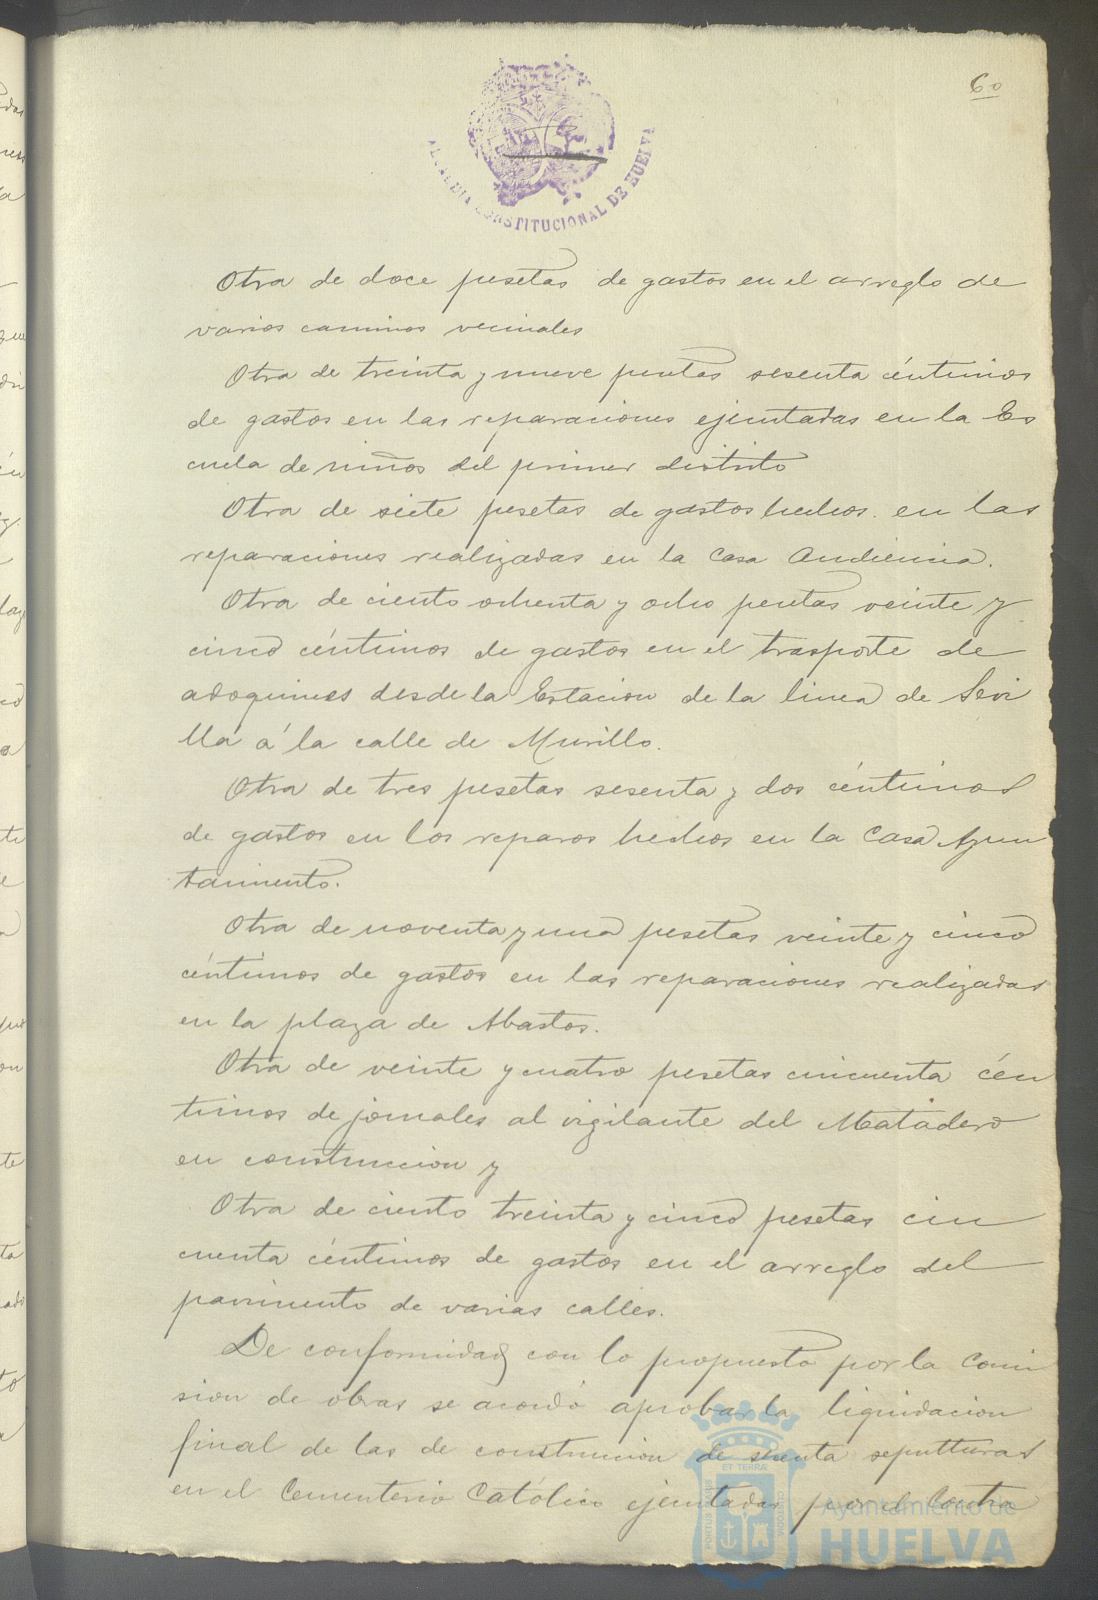 60
ALCALDIA CONSTITUCIONAL DE HUELVA
Otra de doce pesetas de gastos en el arreglo de
varios caminos vecinales
Otra de treinta y nueve pesetas sesenta céntimos
de gastos en las reparaciones ejecutadas en la Es
cuela de niños del primer distrito
Otra de siete pesetas de gastos hechos en las
reparaciones realizadas en la Casa Audiencia.
Otra de ciento ochenta y ocho pesetas veinte y
cinco céntimos de gastos en el trasporte de
adoquines desde la Estacion de la linea de Sevi
lla á la calle de Murillo.
Otra de tres pesetas sesenta y dos céntimos
de gastos en los reparos hechos en la Casa Ayun
tamiento.
Otra de noventa y una pesetas veinte y cinco
céntimos de gastos en las reparaciones realizadas
en la plaza de Abastos.
Otra de veinte y cuatro pesetas cincuenta cén
timos de jornales al vigilante del Matadero
en construccion y
Otra de ciento treinta y cinco pesetas cin
cuenta céntimos de gastos en el arreglo del
pavimento de varias calles.
De conformidad con lo propuesto por la Comi
sion de obras se acordó aprobar la liquidacion
final de las de construccion de sepulturas
en el Cementerio Católico ejecutadas por el Contra
ET TERRÆ
PORTUS MARIS
CUSTODIA
Ayuntamiento de
HUELVA